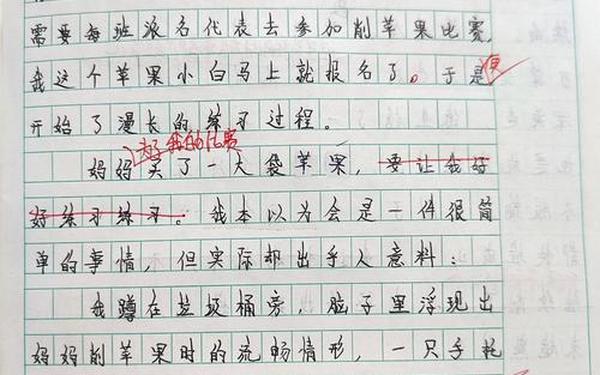 需要每班派名代表去参加削苹果比赛,
我这个苹果小白马上就报名了。于是便
开始了漫长的练习过程。
为了我的比赛
妈妈买了一大袋苹果,要让我好
好练习练习。我本以为会是一件很简
单的事情,但实际却出乎人意料:
我蹲在垃圾桶旁,脑子里浮现出
妈妈削苹果时的流畅情形,一只手托